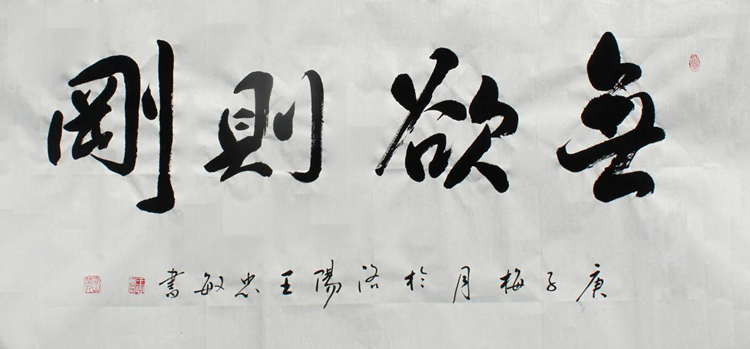 無欲則剛
庚子梅月於洛陽王忠敏書